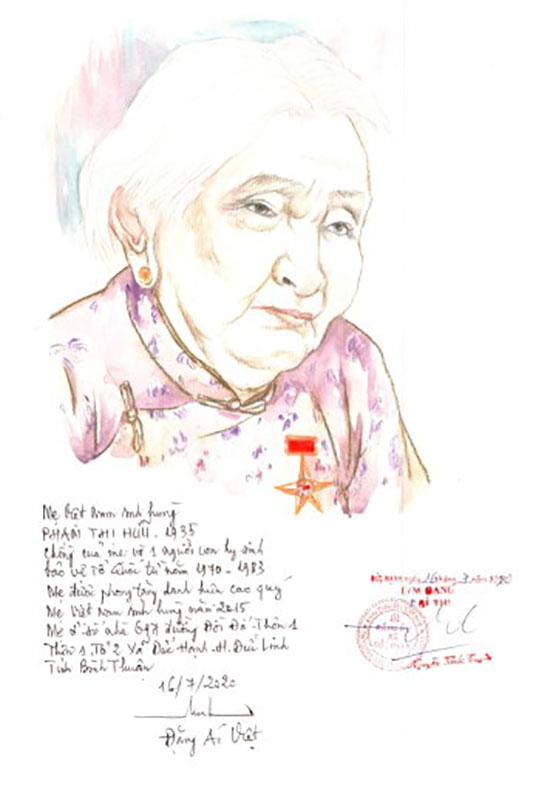 Mẹ Việt Nam Anh hùng
PHẠM THỊ HỮU - 1935
Chồng của mẹ và 1 người con hy sinh
bảo vệ Tổ Quốc từ năm 1970 - 1983
Mẹ được phong tặng danh hiệu cao quý
Mẹ Việt Nam Anh hùng năm 2015
Mẹ ở số nhà 697 đường Đồi Đá - Thôn 1
Thôn 1, Tổ 2 Xã Đức Hạnh - H. Đức Linh
Tỉnh Bình Thuận
16/7/2020
Đặng Ái Việt
Đức Hạnh, ngày 16 tháng 7 năm 2020
T/M ĐẢNG
BÍ THƯ
Nguyễn